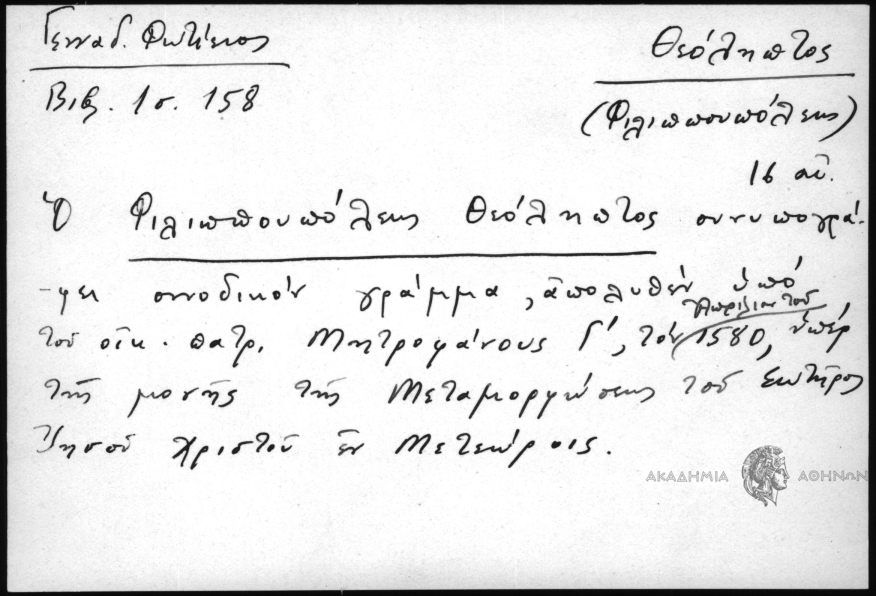 Γενναδ. Φωτίειος
Βιβ. 1 σ. 158
Θεόληπτος
(Φιλιππουπόλεως)
16 αἰ.
Ὁ Φιλιππουπόλεως Θεόληπτος συνυπογρά-
-φει συνοδικόν γράμμα, ἀπολυθέν ὑπό
τοῦ οἰκ. πατρ. Μητροφάνους Γ', τόν Ἀπρίλιον τοῦ 1580, ὑπέρ
τῆς μονῆς τῆς Μεταμορφώσεως τοῦ Σωτῆρος
Ἰησοῦ Χριστοῦ ἐν Μετεώροις.
ΑΚΑΔΗΜΙΑ ΑΘΗΝΩΝ